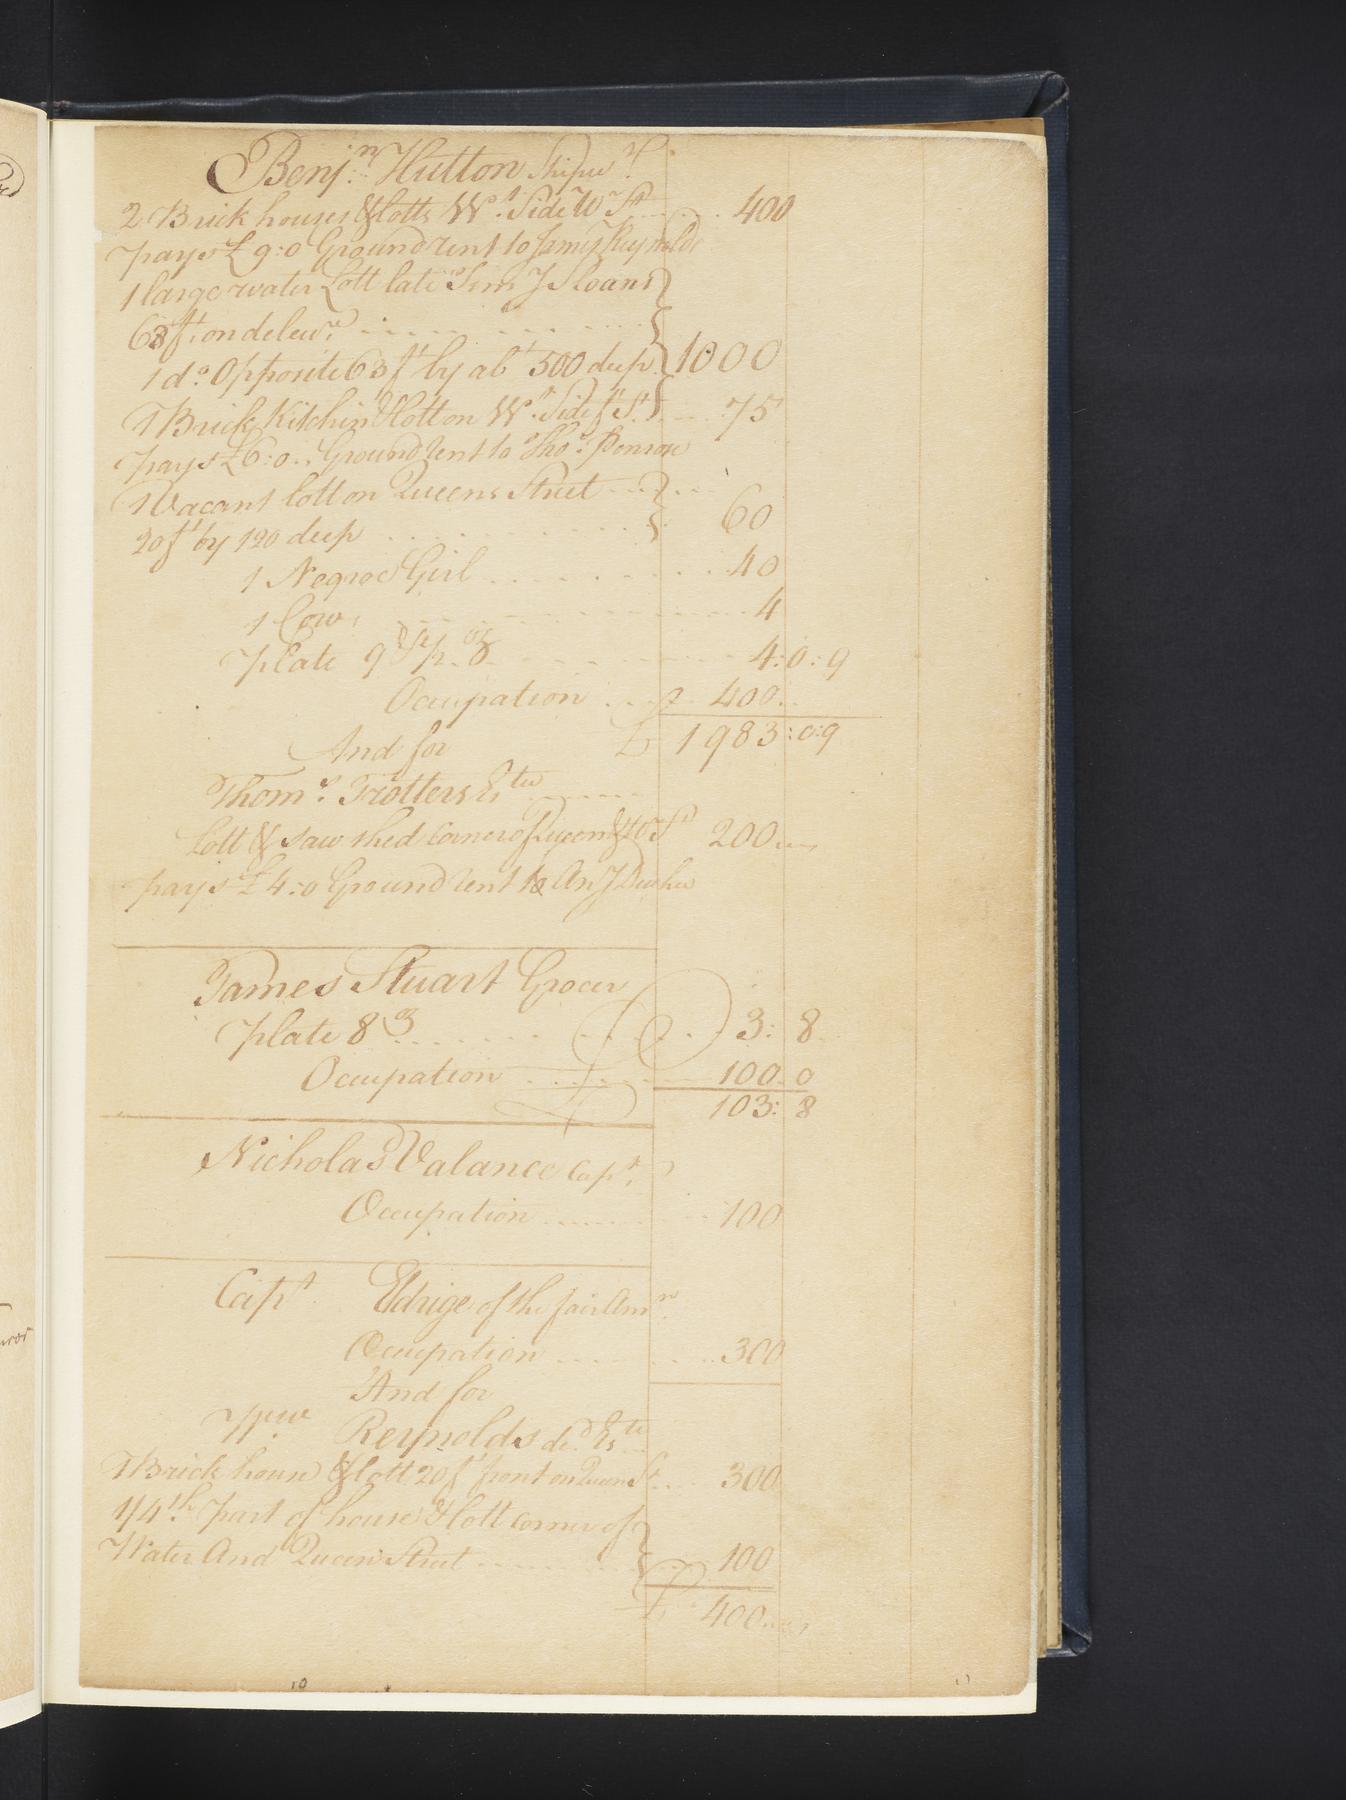 Benjn Hutton Shipwt
2 Brick houses & lotts Wt Side Wr St 400
pays £9:0 Ground rent to James Reynolds
1 large water Lott late Sims & Sloans
63 ft on delewr
1 do Opposite 63 ft by abt 500 deep 1000
1 Brick Kitchin & lott on Wt Side ft St 75
pays £6:0 Ground rent to Thos Penrose
1 Vacant lott on Queens Street
20 ft by 120 deep 60
1 Negroe Girl 40
1 Cow 4
Plate 9 oz 4:0:9
Occupation 400
£ 1983:0:9
And for
Thoms Trotters Este
Lott & Saw shed corner of Queen & Wr St 200
pays £4:0 Ground rent to
James Stuart Grocer
Plate 8 oz 3:8
Occupation 100 0
103:8
Nicholas Valance Capt
Occupation 100
Capt Eldrige of the fair Amn
Occupation 300
And for
Reynolds decd Este
1 Brick house & lott 20 ft front on Queen St 300
1/4th part of house & lott corner of
Water And Queen Street 100
£ 400
10